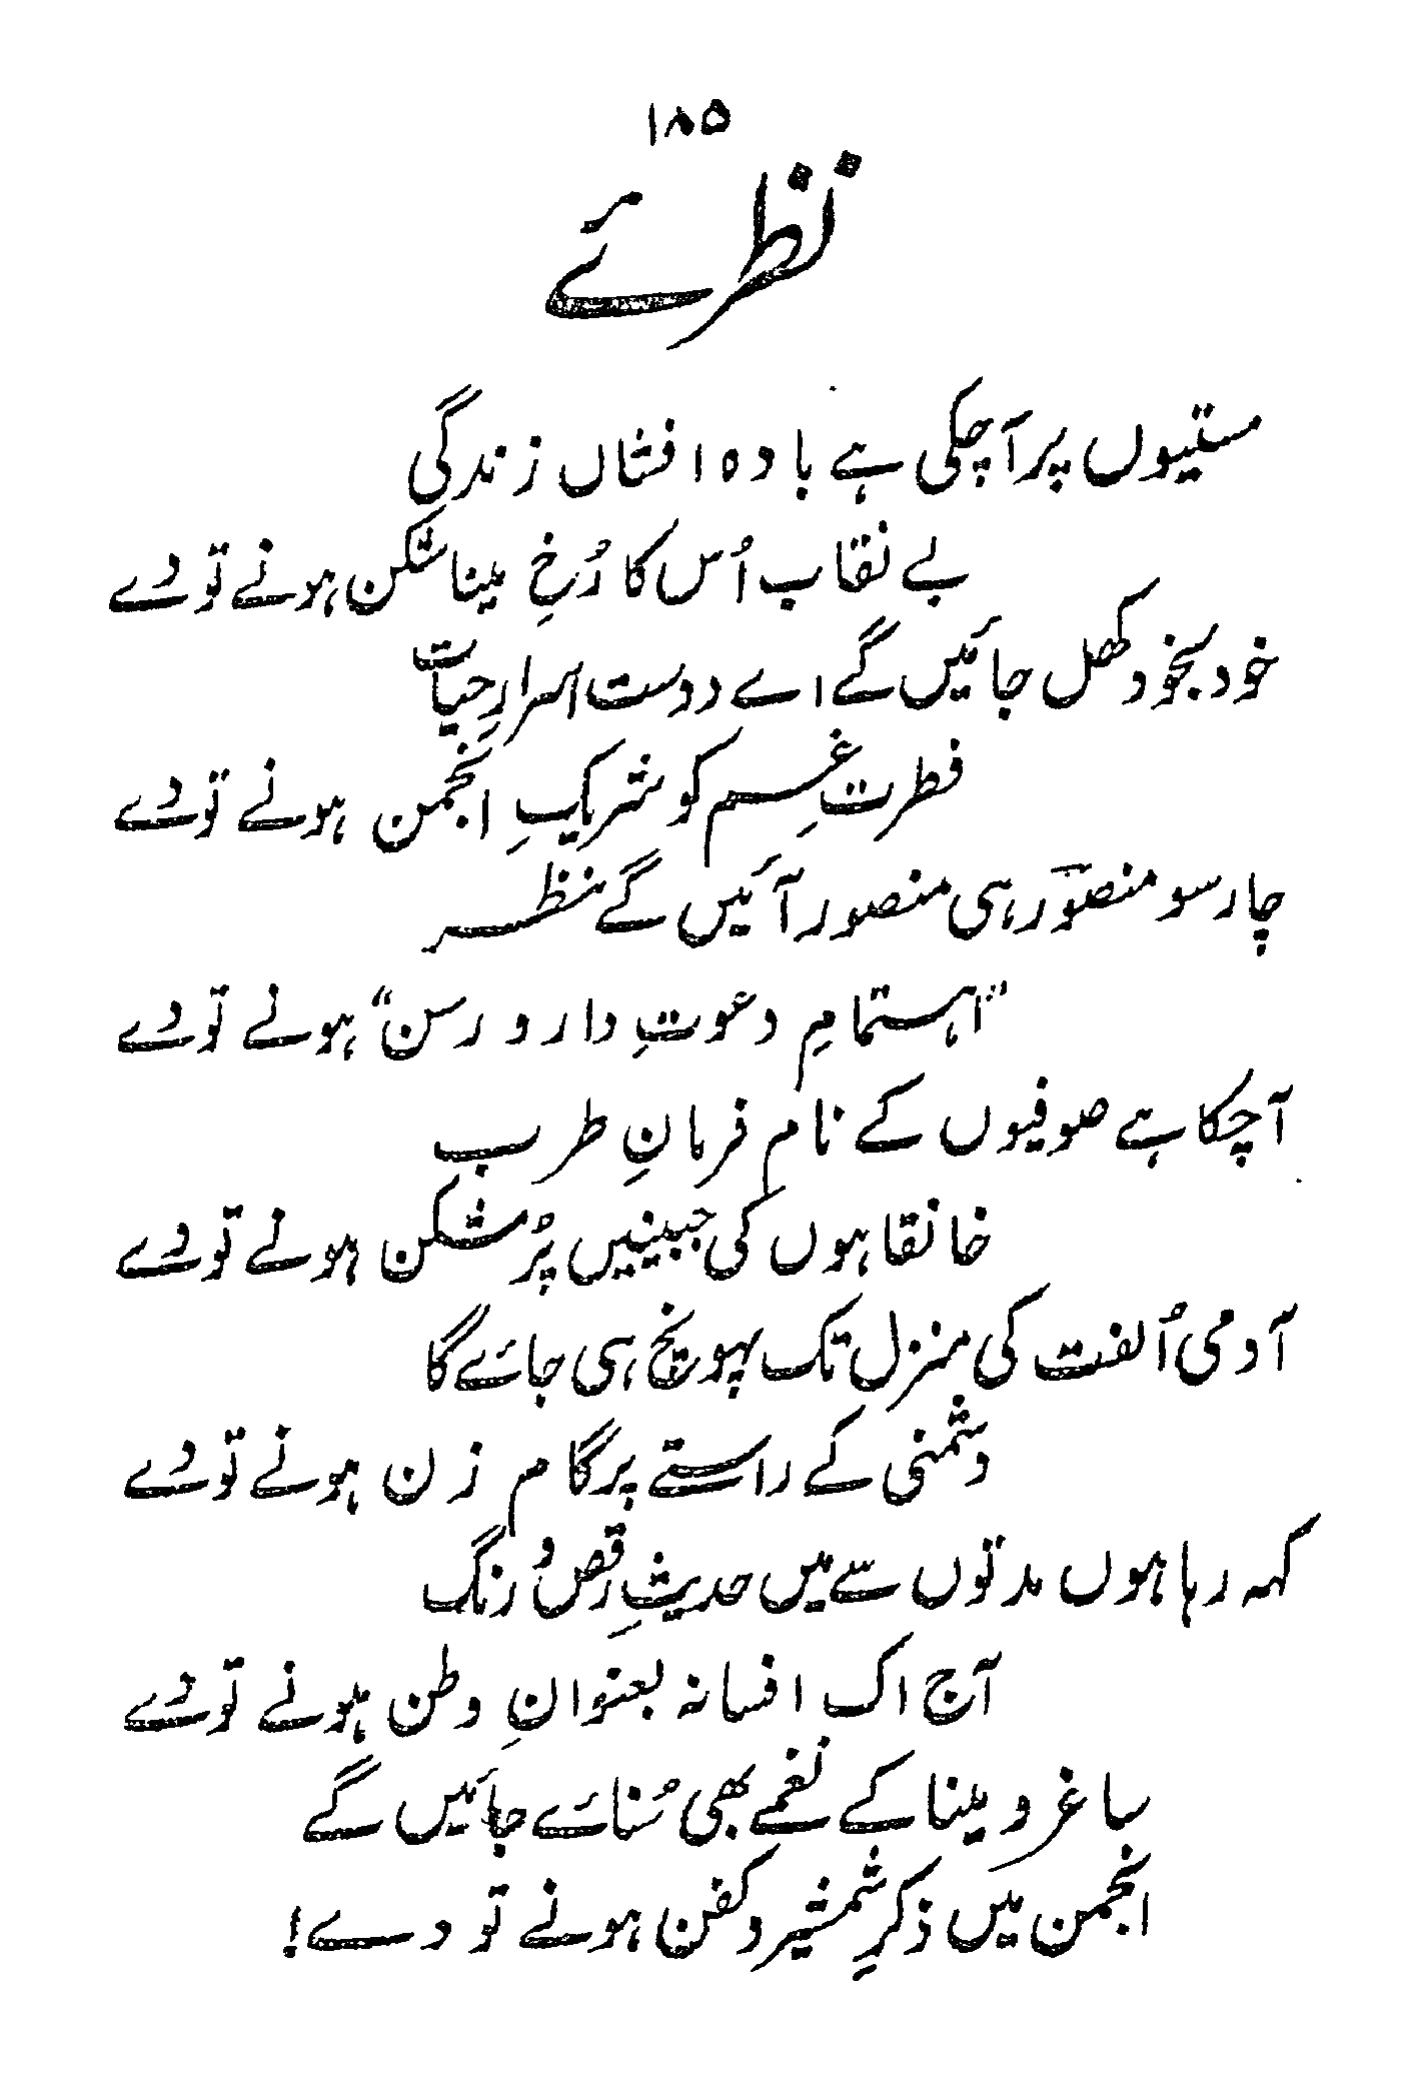 ۱۸۵
نظرئے
مستیوں پر آچکی ہے بادہ افشاں زندگی
بے نقاب اُس کا رُخِ مینا شکن ہونے تو دے
خود بخود کھل جائیں گے اے دوست اسرارِ حیات
فطرتِ غم کو شریکِ انجمن ہونے تو دے
چار سو منصورؔ ہی منصور آئیں گے نظر
"اہتمامِ دعوتِ دار و رسن" ہونے تو دے
آچکا ہے صوفیوں کے نام فرمانِ طرب
خانقاہوں کی جبینیں پُر شکن ہونے تو دے
آدمی اُلفت کی منزل تک پہونچ ہی جائے گا
دشمنی کے راستے پر گام زن ہونے تو دے
کہہ رہا ہوں مدتوں سے میں حدیثِ رقص و رنگ
آج اک افسانہ بعنوانِ وطن ہونے تو دے
ساغر و مینا کے نغمے بھی سُنائے جائیں گے
انجمن میں ذکرِ شمشیر و کفن ہونے تو دے!